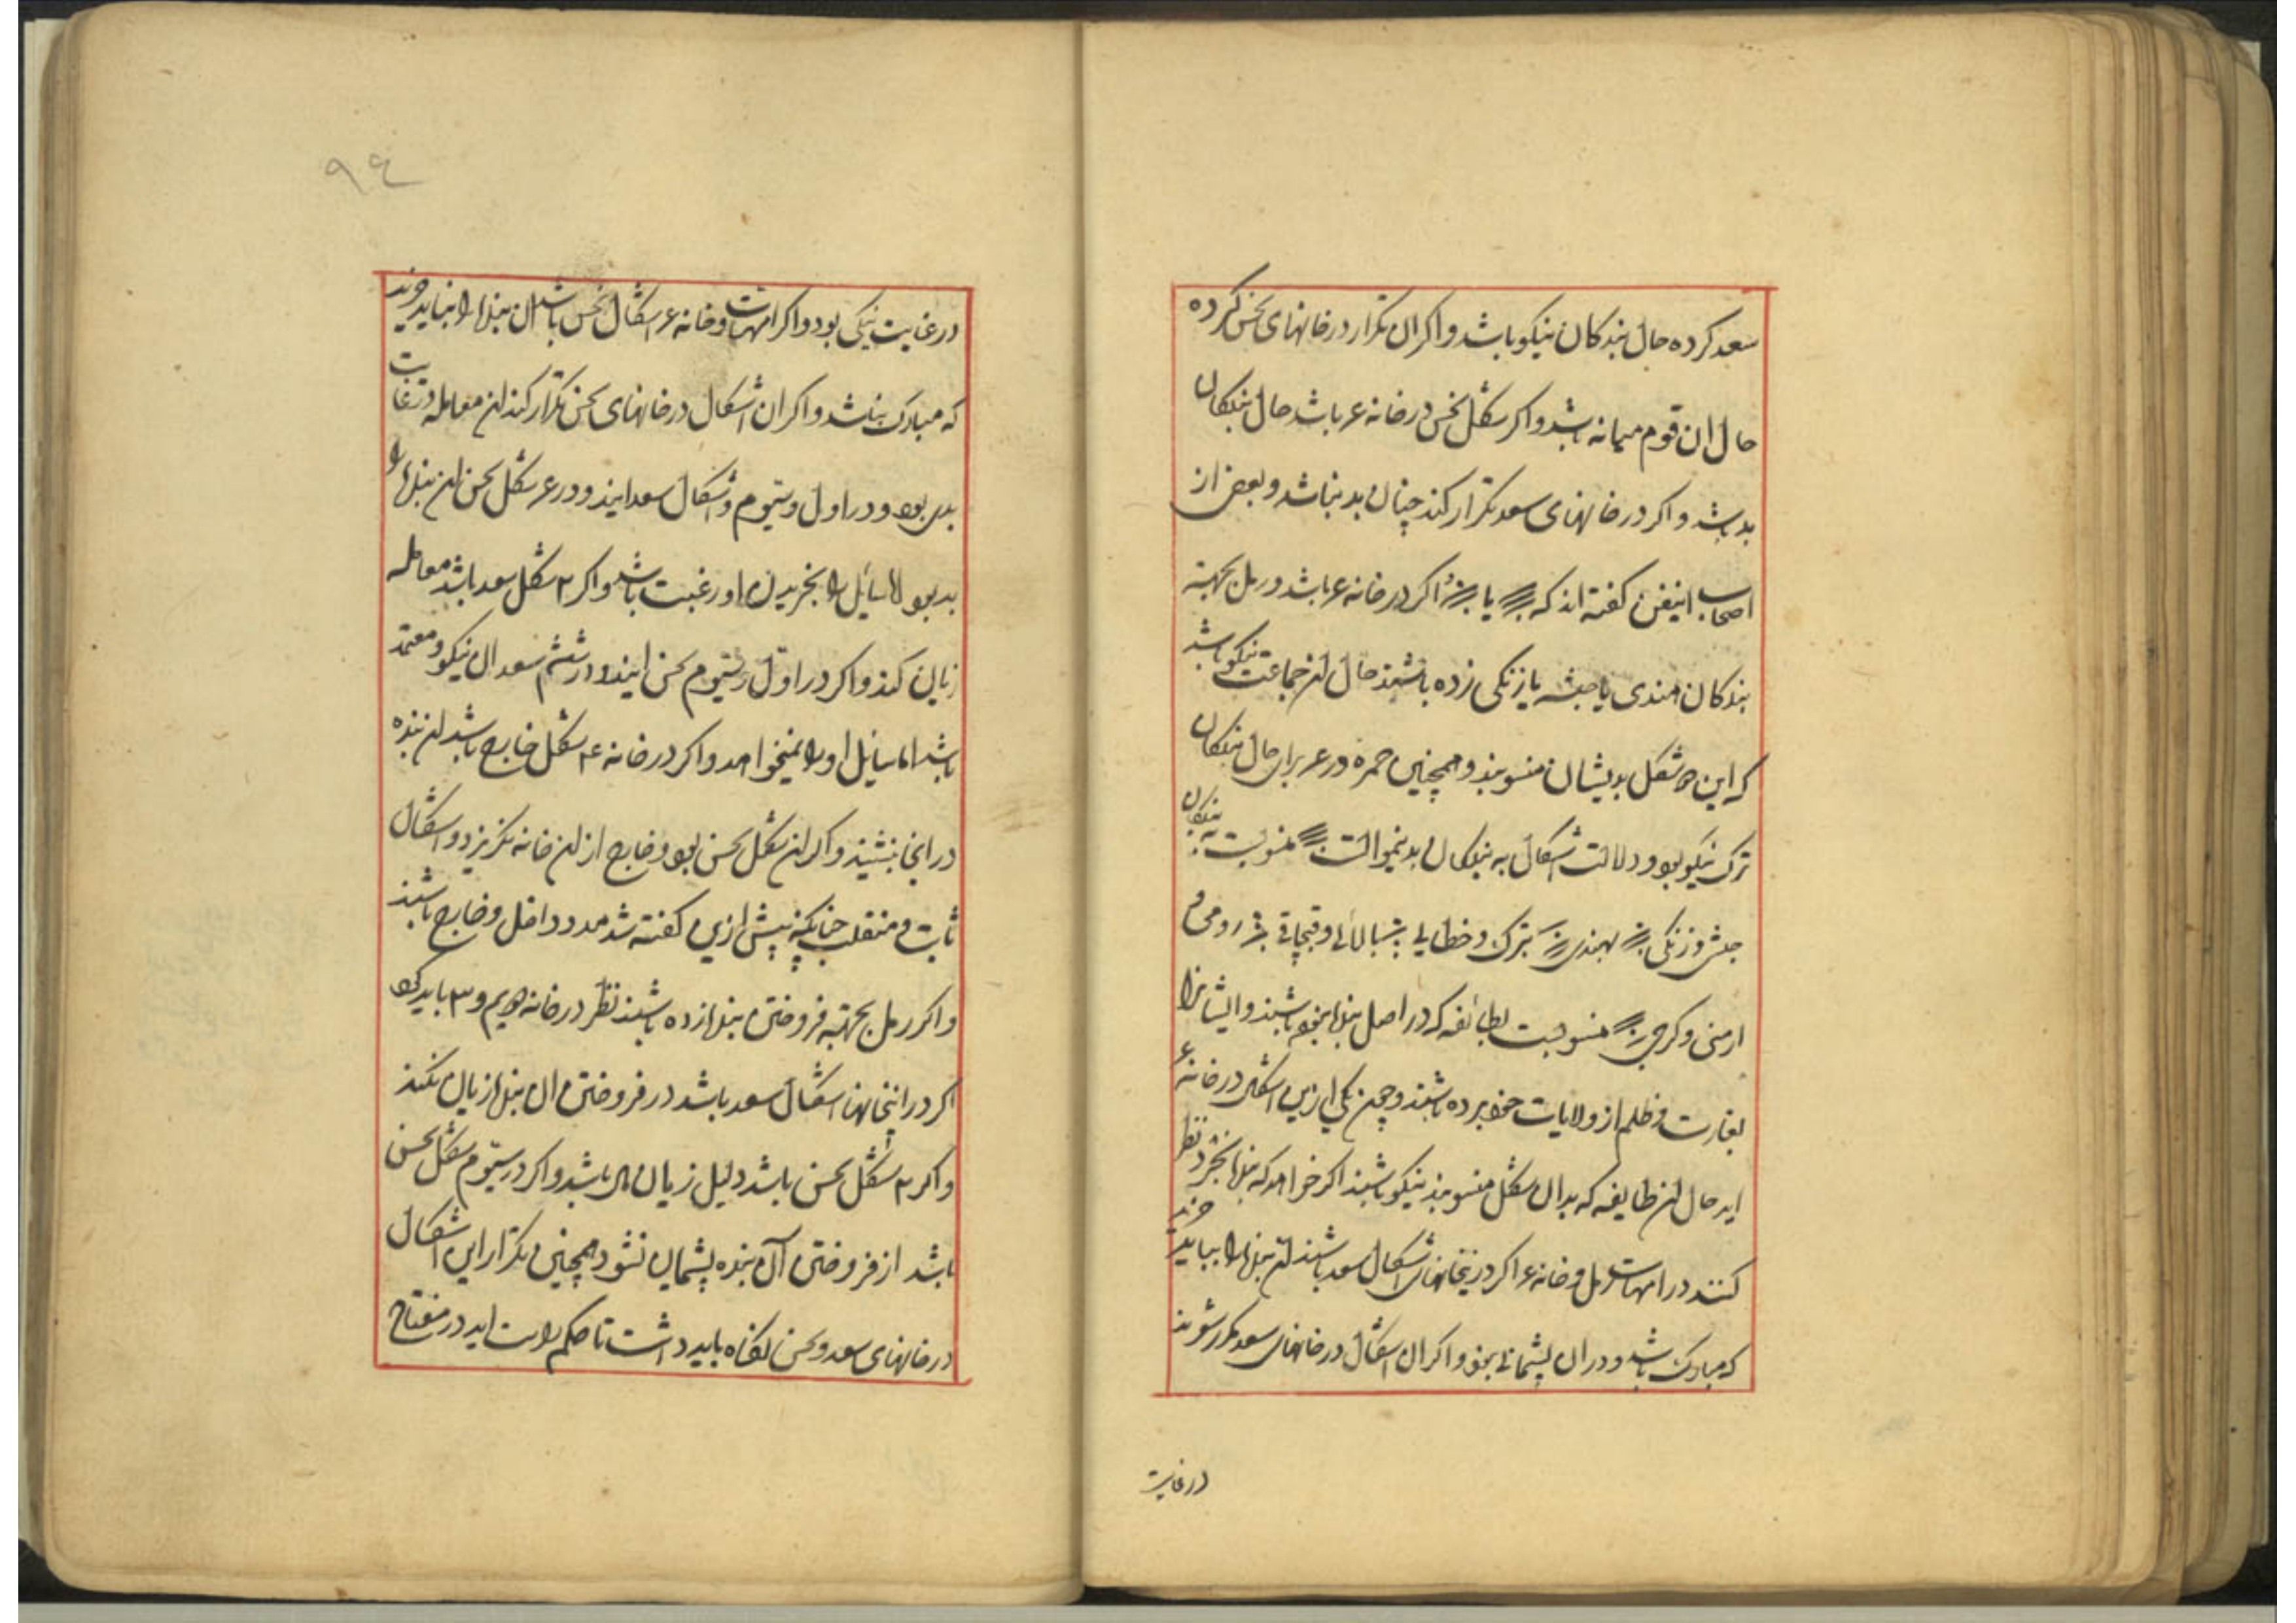 سعد کرده حال بندکان نیکو باشد و اکر ان تکرار در خانهای نحس کرده
حال ان قوم میانه باشد و اکر شکل نحس در خانه ۶ باشد حال بندکان
بد باشد و اکر در خانهای سعد تکرار کند چنان بد نباشد و بعض از
اصحاب اینفن کفته اند که یا اکر در خانه ۶ باشد و رمل بجهته
بندکان هندی یا حبشه یا زنکی زده باشند حال ان جماعت نیکو باشد
که این شکل بدیشان منسوبند و همچنین حمره در ۶ برای حال بندکان
ترک نیکو بود و دلالت اشکال به بندکان بدینموالست منسوبست به بندکان
حبش و زنکی بهندی بترک و خطایی و قبچاقی رومی و
ارمنی و کرجی منسوبست بطائفه که در اصل بنده نبوده باشند و ایشانرا
بغارت و ظلم از ولایات خود برده باشند و چون یکی ازین اشکال در خانه ۶
اید حال ان طایفه که بدان شکل منسوبند نیکو باشند اکر خواهد که بنده بخرد نظر
کنند در امهات رمل و خانه ۶ اکر درینخانهای اشکال سعد باشند ان بنده را بباید خرید
که مبارک باشد و در ان پشمانی نبود و اکر ان اشکال در خانهای سعد مکرر شوند
در غایت
۹۴
در غایت نیکی بود و اکر امهات و خانه ۶ اشکال نحس باشد ان بنده را نباید خرید
که مبارک نباشد و اکر ان اشکال در خانهای نحس تکرار کند ان معامله در غایت
بدی بود و در اول و سیوم اشکال سعد ایند و در ۶ شکل نحس ان بنده را
بد بود اما سایل را بخریدن او رغبت باشد و اکر ۲ شکل سعد باشد معامله
زیان کند و اکر در اول و سیوم نحس ایند و در ششم سعد ان نیکو و معتمد
باشد اما سایل او را نمیخواهد و اکر در خانه ۴ شکل خارج باشد ان بنده
در انجا ننشیند و اکر ان شکل نحس بود و خارج از ان خانه بکریزد و اشکال
ثابت و منقلب چنانکه پیش ازین کفته شد مدد داخل و خارج باشند
و اکر رمل بجهته فروختن بنده زده باشند نظر در خانه دویم و ۳ باید کرد
اکر در اینخانها اشکال سعد باشد در فروختن ان بنده زیان نکند
و اکر ۲ شکل نحس باشد دلیل زیان باشد و اکر در سیوم شکل نحس
باشد از فروختن آن بنده پشمان نشود و همچنین تکرار این اشکال
در خانهای سعد و نحس نکاه باید داشت تا حکم راست اید در مفتاح